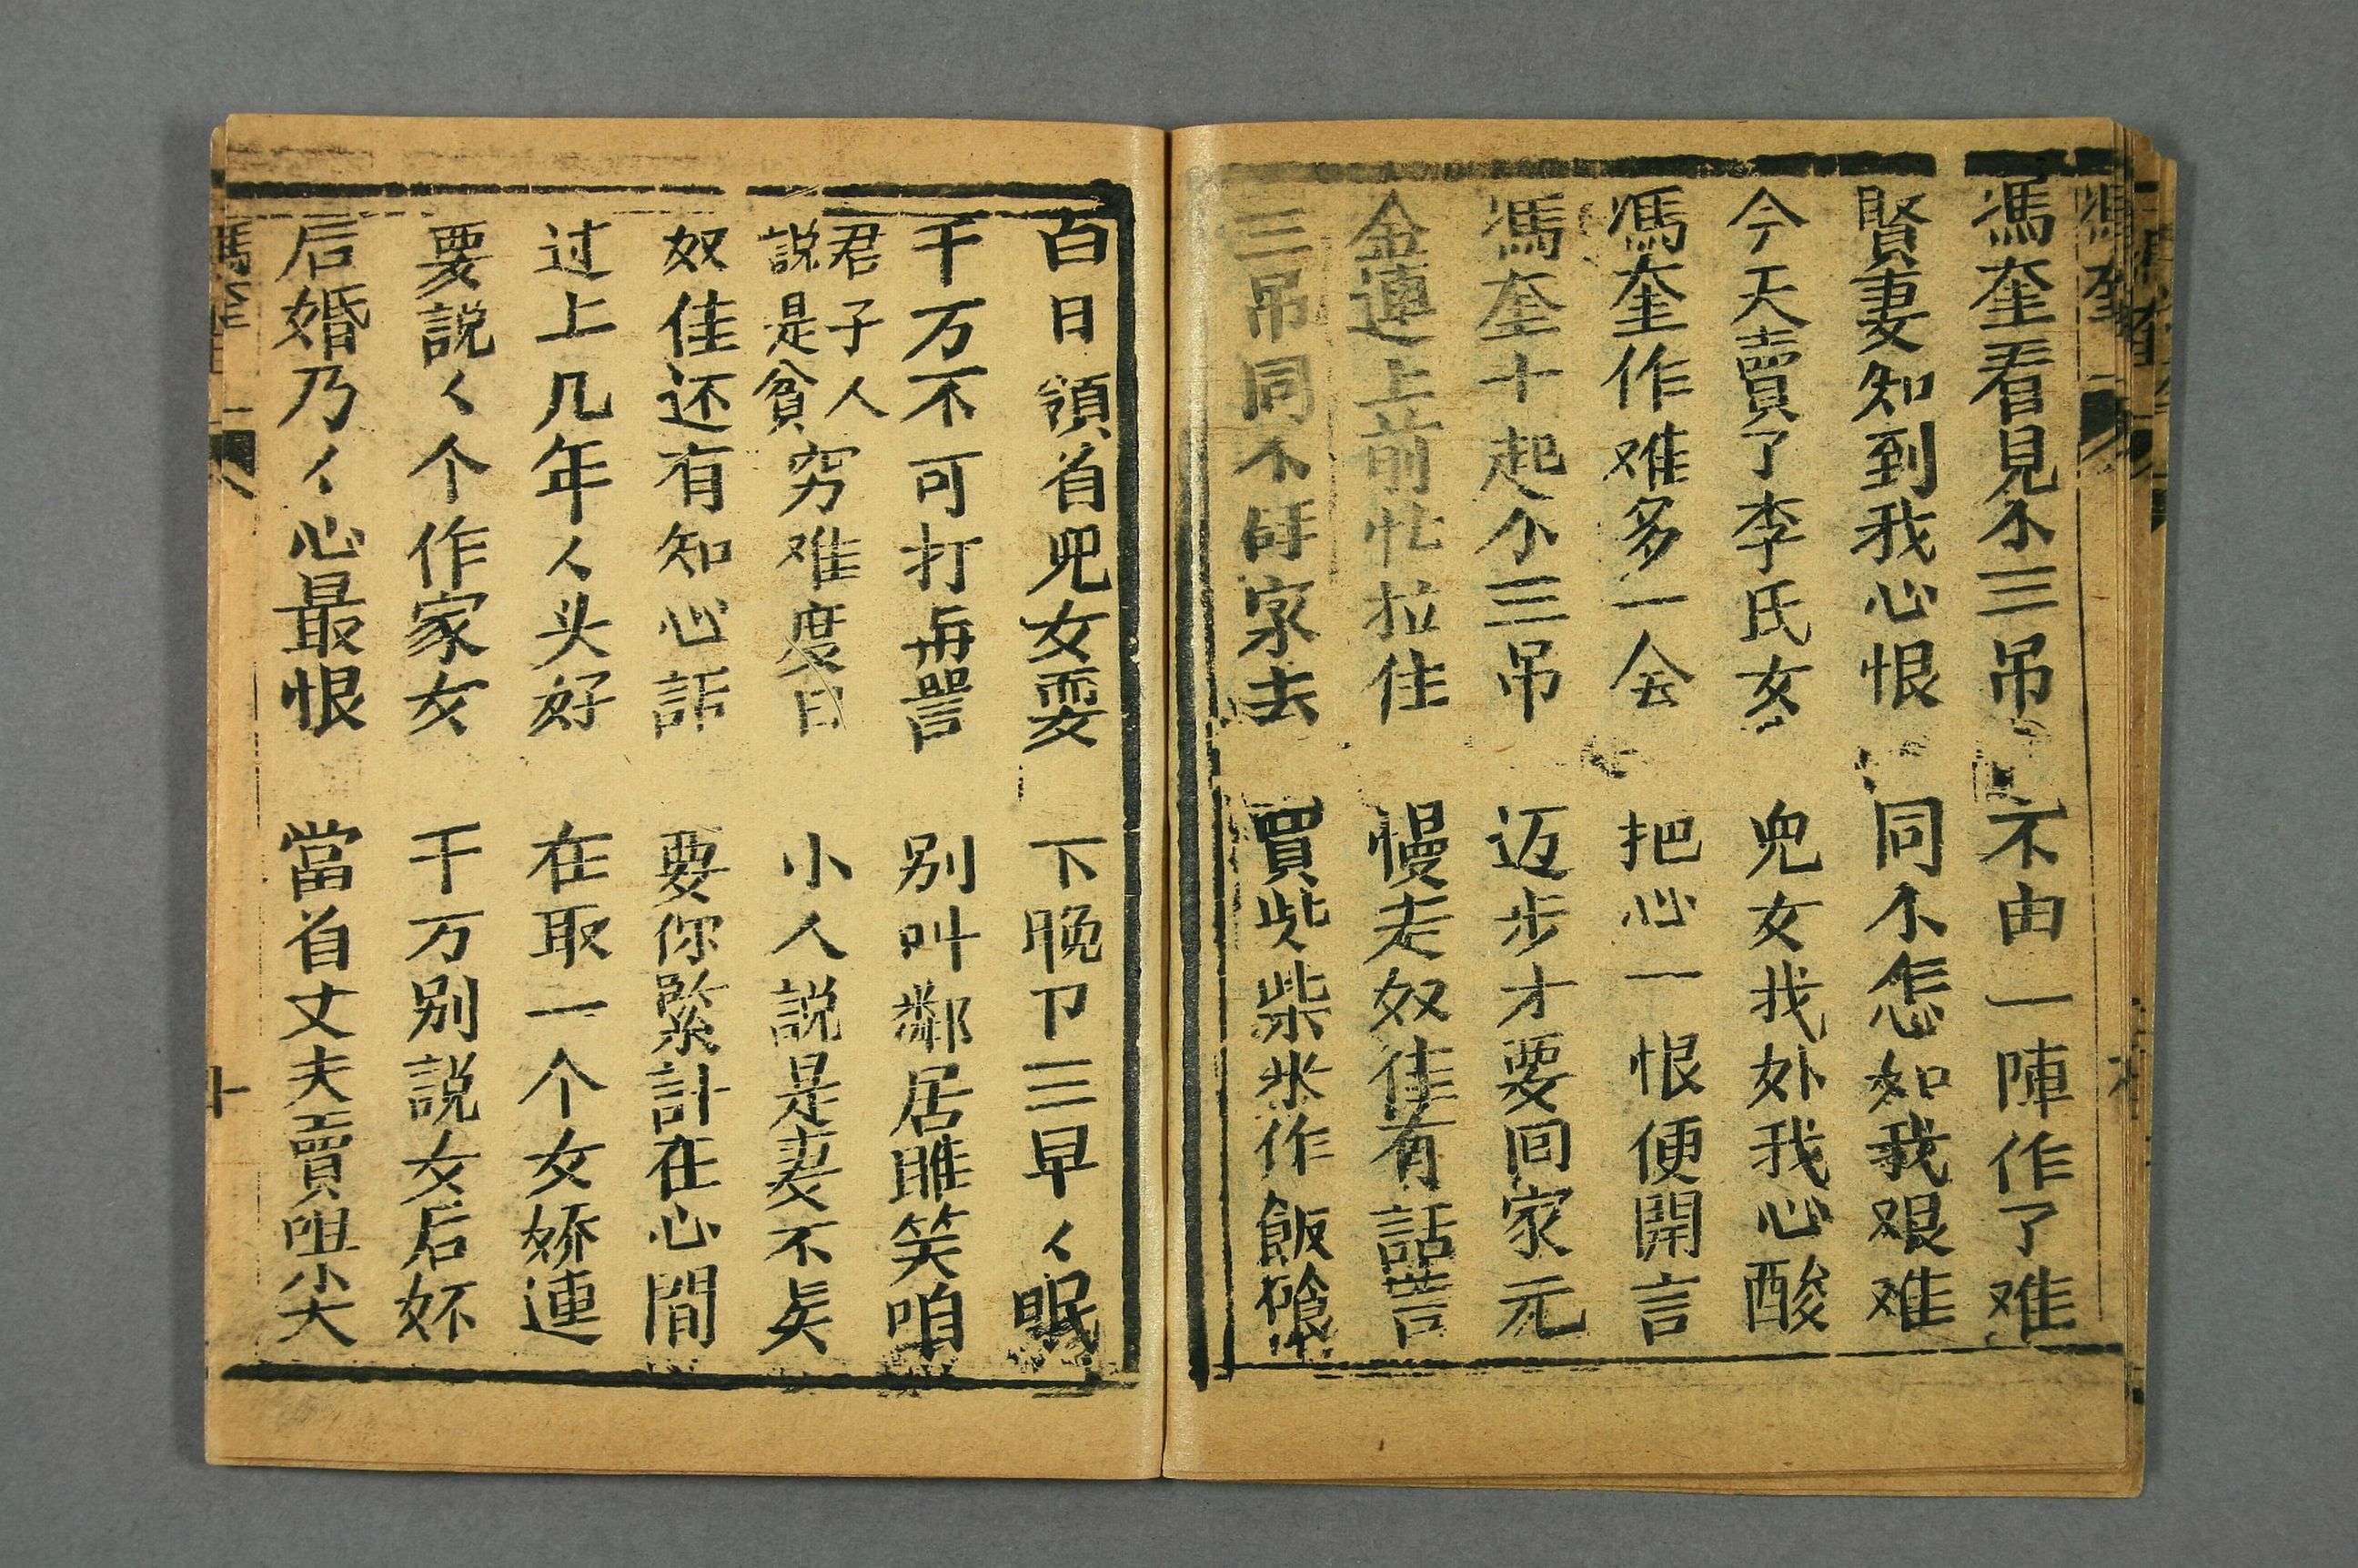 馮奎看見亽三吊 不由一陣作了难
賢妻知到我心恨 同亽怎如我艰难
今天賣了李氏女 兜女找外我心酸
馮奎作难多一会 把心一恨便開言
馮奎十起亽三吊 迈步才要回家元
金連上前忙拉住 慢走奴佳有話言
三吊同亽家去 買些柴米作飯飡
百日領首兜女要 下晚卩三早く眠
千万不可打毒詈 别叫鄰居睢笑咱
君子人説是貧穷难度日 小人説是妻不矣
奴佳还有知心話 要你緊計在心間
过上几年人头好 在取一个女娇連
要説く个作家女 千万别説女后妚
后婚乃く心最恨 當首丈夫賣咀尖
馮奎
十